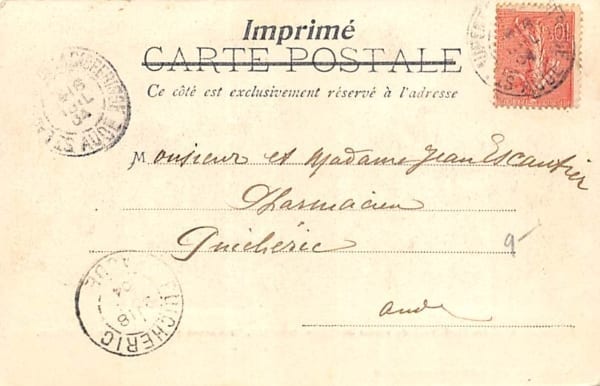 Imprimé
CARTE POSTALE
Ce côté est exclusivement réservé à l'adresse
Monsieur et Madame Jean Escantier
Pharmacien
Puichéric
Aude
9-
10
AUDE
PUICHERIC
AUDE